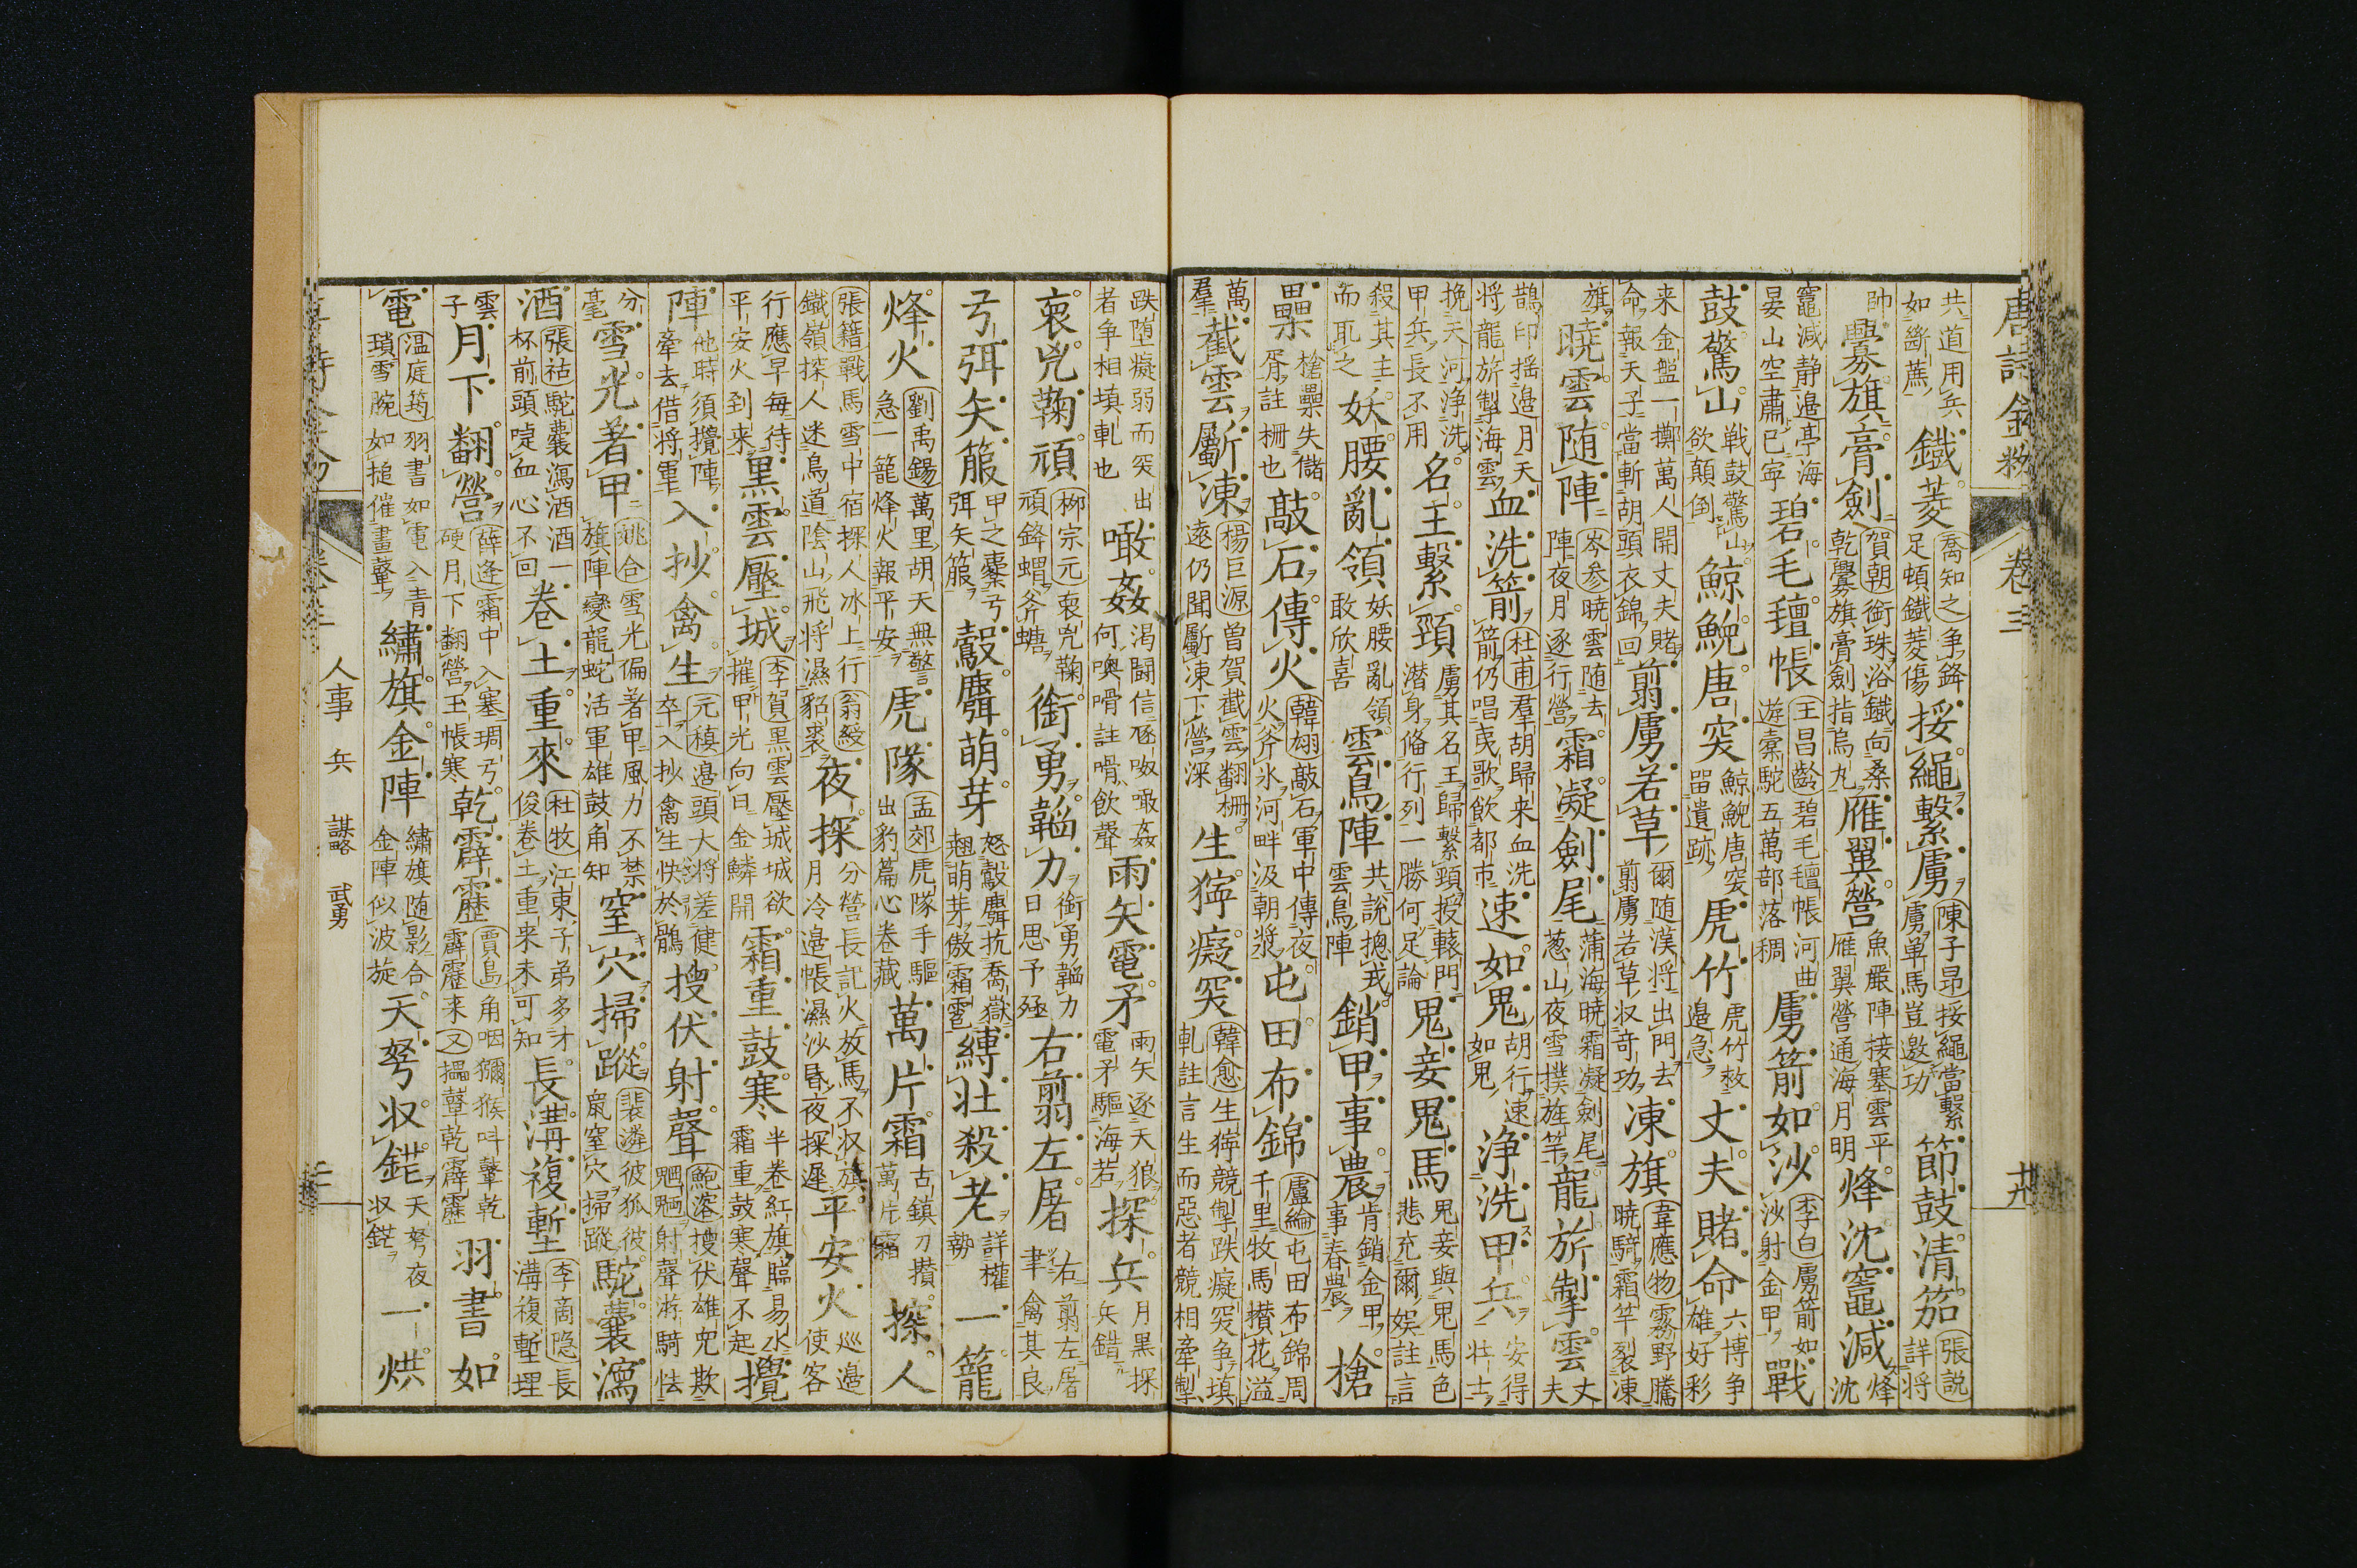 唐詩金粉 卷三 廿
共道用兵如斷蔗 鐵菱 喬知之爭鋒足頓鐵菱傷 挼繩繫虜 陳子昂挼繩當繫虜單馬豈邀功 節鼓清笳 張說詳將
帥 纛旗膏劍 賀朝銜珠浴鐵向桑乾纛旗膏劍指烏丸 雁翼營 魚嚴陣接塞雲平雁翼營通海月明 烽沈竈減 烽沈
竈減静邊亭海晏山空肅已寧 碧毛氊帳 王昌齡碧毛氊帳河曲遊橐駝五萬部落稠 虜箭如沙 李白虜箭如沙射金甲 戰
鼓驚山 戰鼓驚山欲顛倒 鯨鯢唐突 鯨鯢唐突留遺跡 虎竹 虎竹救邊急 丈夫賭命 六博爭雄好彩
来金盤一擲萬人開丈夫賭命報天子當斬胡頭衣錦回 翦虜若草 爾随漢將出門去翦虜若草収奇功 凍旗 韋應物霧野騰曉騎霜竿裂凍
旗 曉雲随陣 岑參曉雲随去陣夜月逐行營 霜凝劍尾 蒲海曉霜凝劍尾葱山夜雪撲旌竿 龍旂掣雲 丈夫
鵲印揺邊月天将龍旂掣海雲 血洗箭 杜甫羣胡歸来血洗箭仍唱夷歌飲都市 速如鬼 胡行速如鬼 浄洗甲兵 安得壮士
挽天河浄洗甲兵長不用 名王繫頸 虜其名王歸繫頸授轅門潜身偹行列一勝何足論 鬼妾鬼馬 鬼妾與鬼馬色悲充爾娯註言
殺其主而取之 妖腰亂領 妖腰亂領敢欣喜 雲鳥陣 共說摠戎雲鳥陣 銷甲事農 肯銷金甲事春農 搶
壘 槍壘失儲胥註柵也 敲石傳火 韓翃敲石軍中傳夜火斧氷河畔汲朝漿 屯田布錦 盧綸屯田布錦周千里牧馬攅花溢
萬羣 截雲斸凍 楊巨源曽賀截雲翻柵遠仍聞斸凍下營深 生獰癡突 韓愈生獰競掣跌癡突争填軋註言生而惡者競相牽掣
跌堕癡弱而突出者争相填軋也 噉姦 渇闘信豗呶噉姦何噢㗘註㗘飲聲 雨矢電矛 雨矢逐天狼電矛驅海若 探兵 月黒探兵錯
裒兇鞠頑 柳宗元裒兇鞠頑鋒蝟斧螗 銜勇韜力 銜勇韜力日思予殛 右翦左屠 右翦左屠聿禽其良
弓弭矢箙 甲之櫜弓弭矢箙 鷇麛萌芽 怒鷇麛抗喬嶽翹萌芽傲霜雹 縛壮殺老 詳權勢 一籠
烽火 劉禹錫萬里胡天無警急一籠烽火報平安 虎隊 孟郊虎隊手驅出豹篇心卷藏 萬片霜 古鎮刀攅萬片霜 探人
張籍戰馬雪中宿探人冰上行 翁綬 鐵嶺探人迷鳥道陰山飛將濕貂裘 夜探 分營長記火放馬不収旗月冷邊帳濕沙昬夜探遲 平安火 巡邊使客
行應早毎待平安火到来 黒雲壓城 李賀黒雲壓城城欲摧甲光向日金鱗開 霜重鼓寒 半卷紅旗臨易水霜重鼓寒聲不起 攪
陣 他時須攪陣牽去借将軍 入抄禽生 元稹邊頭大将差健卒入抄禽生快於鶻 搜伏射聲 鮑溶搜伏雄兕欺魍魎射聲游騎怯
毫分 雪光著甲 姚合雪光偏著甲風力不禁旗陣變龍蛇活軍雄鼓角知 窒穴掃蹤 裴潾彼狐彼鼠窒穴掃蹤 駝囊瀉
酒 張祜駝囊瀉酒酒一杯前頭啑血心不回 卷土重來 杜牧江東子弟多才俊卷土重来未可知 長溝複塹 李商隐長溝複塹埋
雲子 月下翻營 薛逢霜中入塞琱弓硬月下翻營玉帳寒 乾霹靂 賈島角咽獼猴呌鼙乾霹靂来 又搵鼙乾霹靂 羽書如
電 温庭筠羽書如電入青瑣雪腕如搥催畫鼙 繡旗金陣 繡旗随影合金陣似波旋 天弩収鋩 天弩夜収鋩 一烘
卷三 人事 兵 謀略 武勇